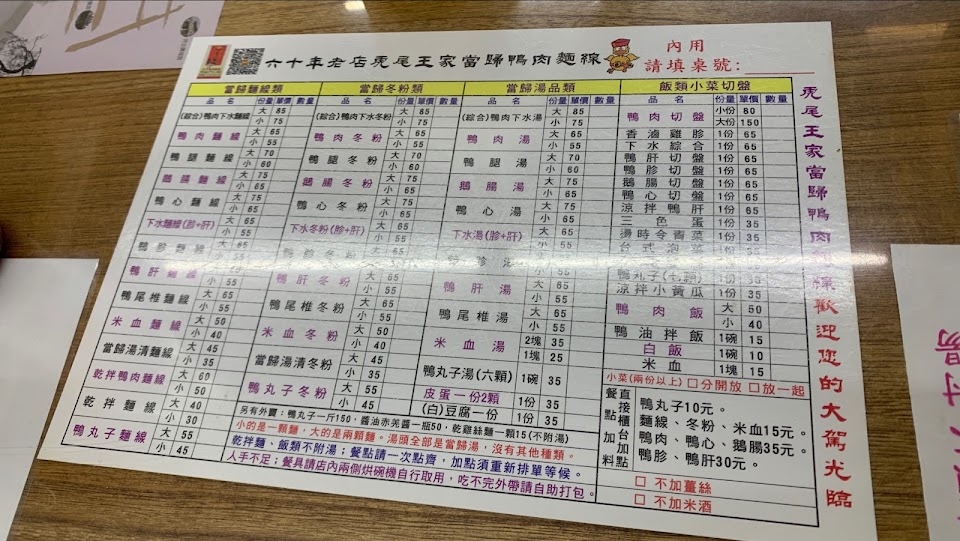 六十年老店虎尾王家當歸鴨肉麵線
內用
請填桌號:
當歸麵線類
品名 份量 單價 數量
(綜合)鴨肉下水麵線 大 85
小 75
鴨肉麵線 大 65
小 55
鴨腿麵線 大 70
小 60
鵝腸麵線 大 75
小 65
鴨心麵線 大 75
小 65
下水麵線(胗+肝) 大 65
小 55
鴨胗麵線 大 65
小 55
鴨肝麵線 大 65
小 55
鴨尾椎麵線 大 65
小 55
米血麵線 大 50
小 40
當歸湯清麵線 大 45
小 35
乾拌鴨肉麵線 大 60
小 50
乾拌麵線 大 40
小 30
鴨丸子麵線 大 55
小 45
當歸冬粉類
品名 份量 單價 數量
(綜合)鴨肉下水冬粉 大 85
小 75
鴨肉冬粉 大 65
小 55
鴨腿冬粉 大 70
小 60
鵝腸冬粉 大 75
小 65
鴨心冬粉 大 75
小 65
下水冬粉(胗+肝) 大 65
小 55
冬粉 大 65
小 55
鴨肝冬粉 大 65
小 55
鴨尾椎冬粉 大 65
小 55
米血冬粉 大 50
小 40
當歸湯清冬粉 大 45
小 35
鴨丸子冬粉 大 55
小 45
當歸湯品類
品名 份量 單價 數量
(綜合)鴨肉下水湯 大 85
小 75
鴨肉湯 大 65
小 55
鴨腿湯 大 70
小 60
鵝腸湯 大 75
小 65
鴨心湯 大 75
小 65
下水湯(胗+肝) 大 65
小 55
胗 大 65
小 55
鴨肝湯 大 65
小 55
鴨尾椎湯 大 65
小 55
米血湯 2塊 35
1塊 25
鴨丸子湯(六顆) 1碗 35
皮蛋一份2顆 1份 35
(白)豆腐一份 1份 35
飯類小菜切盤
品名 份量 單價 數量
鴨肉切盤 小份 80
大份 150
香滷雞胗 1份 65
下水綜合 1份 65
鴨肝切盤 1份 65
鴨胗切盤 1份 65
鵝腸切盤 1份 65
鴨心切盤 1份 65
涼拌鴨肝 1份 65
三色蛋 1份 35
燙時令青菜 1份 35
台式泡菜 1份 35
鴨丸子 1份 35
涼拌小黃瓜 1份 35
鴨肉飯 大 50
小 40
鴨油拌飯 1碗 15
白飯 1碗 10
米血 1塊 15
小菜(兩份以上)□分開放 □放一起
餐點加料 直接櫃台加點
鴨丸子10元。
麵線、冬粉、米血15元。
鴨肉、鴨心、鵝腸35元。
鴨胗、鴨肝30元。
□ 不加薑絲
□ 不加米酒
另有外賣:鴨丸子一斤150、醬油赤羌醬一瓶50、乾雞絲麵一顆15(不附湯)
小的是一顆麵,大的是兩顆麵。湯頭全部是當歸湯,沒有其他種類。
乾拌麵、飯類不附湯;餐點請一次點齊,加點須重新排單等候。
人手不足;餐具請店內兩側烘碗機自行取用,吃不完外帶請自助打包。
虎尾王家當歸鴨肉麵線歡迎您的大駕光臨